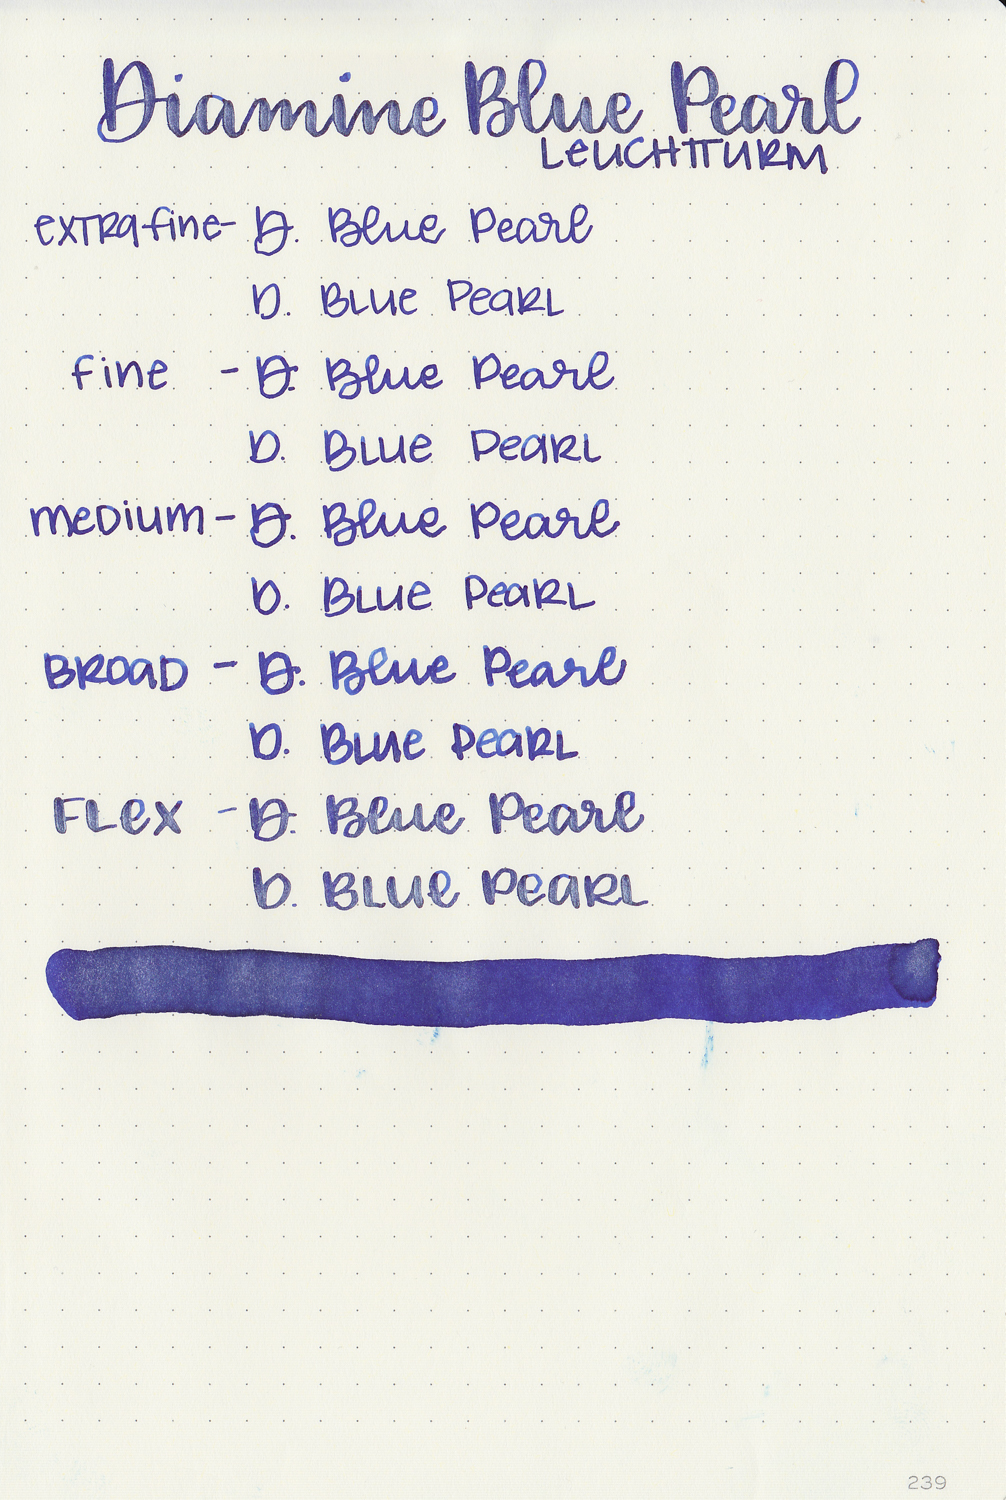 Diamine Blue Pearl
LEUCHTTURM
extra fine - D. Blue Pearl
D. BLUE PEARL
fine - D. Blue Pearl
D. BLUE PEARL
medium - D. Blue Pearl
D. BLUE PEARL
BROAD - D. Blue Pearl
D. BLUE PEARL
FLEX - D. Blue Pearl
D. BLUE PEARL
239